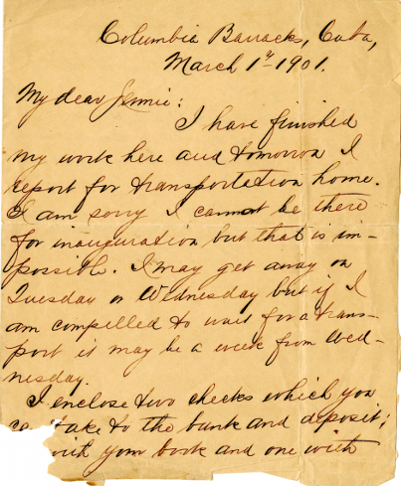 Columbia Barracks, Cuba,
March 1st 1901.
My dear Jennie:
I have finished
my work here and tomorrow I
report for transportation home.
I am sorry I cannot be there
for inauguration but that is im-
possible. I may get away on
Tuesday or Wednesday but if I
am compelled to wait for a trans-
port it may be a week from Wed-
nesday.
I enclose two checks which you
take to the bank and deposit;
with your book and one with